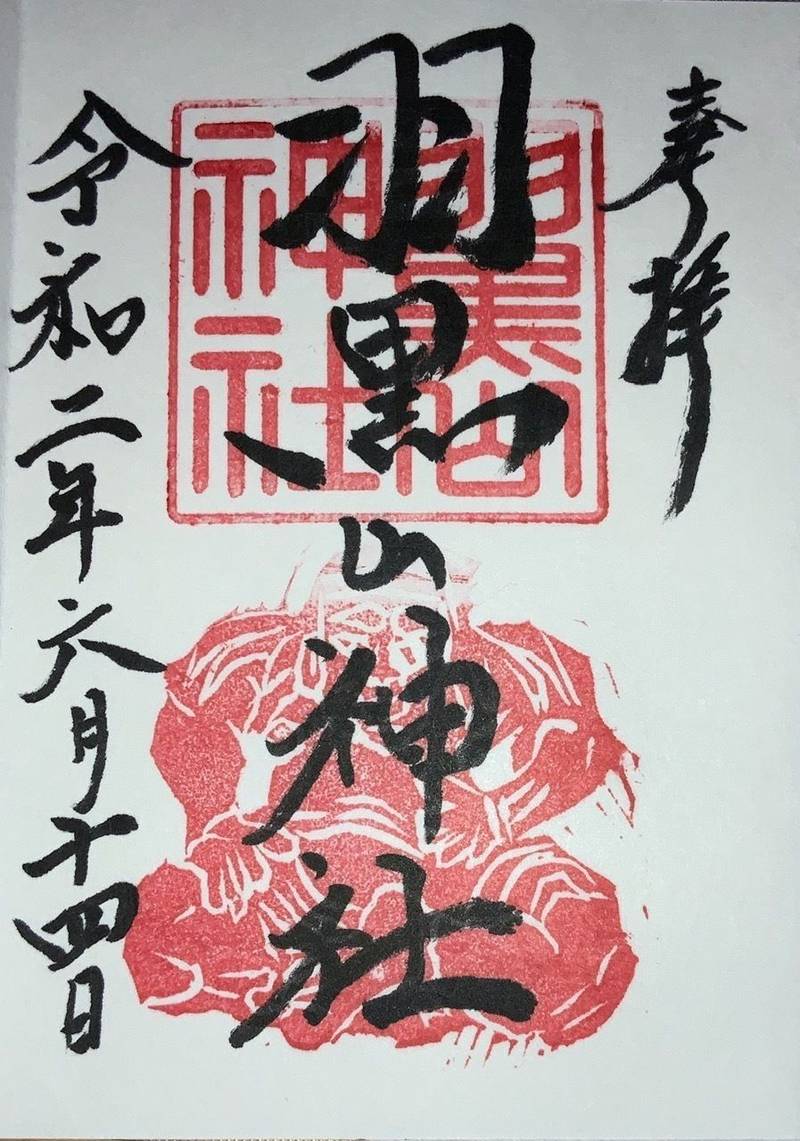 奉拝
羽黒山神社
羽黒山
神社
令和二年六月十四日